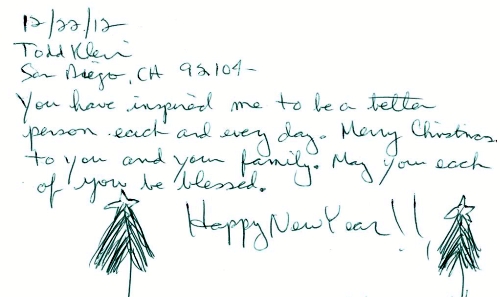 12/22/12
Todd Klein
San Diego, CA 92104
You have inspired me to be a better
person each and every day. Merry Christmas
to you and your family. May you each
of you be blessed.
Happy New Year!!